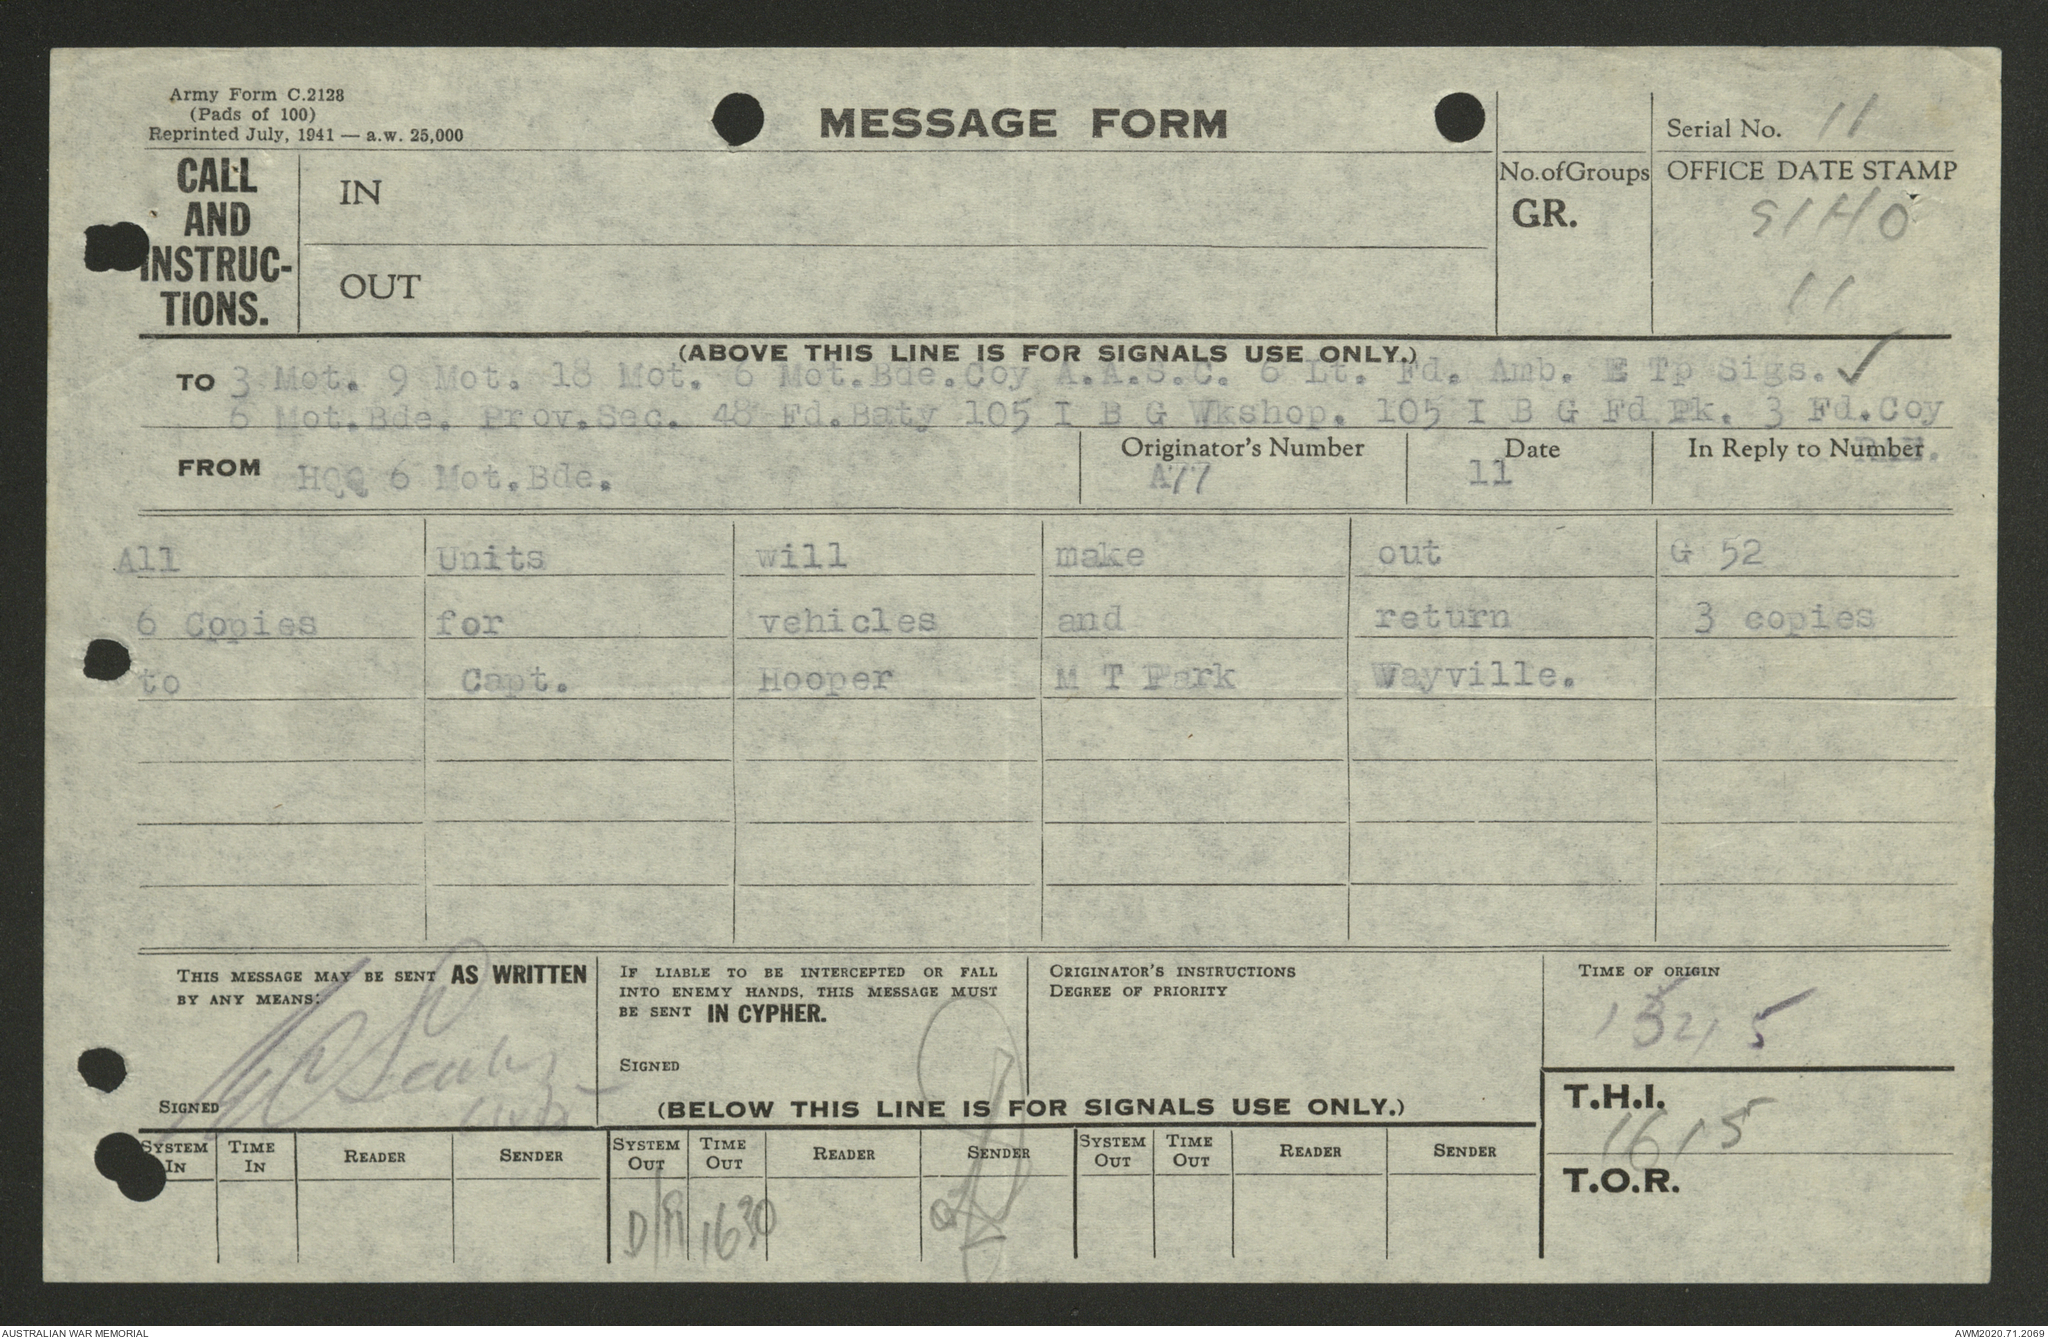 Army Form C.2128
(Pads of 100)
Reprinted July, 1941 — a.w. 25,000
MESSAGE FORM
Serial No. 11
CALL AND INSTRUC-TIONS.
IN
OUT
No.ofGroups
GR.
OFFICE DATE STAMP
11
(ABOVE THIS LINE IS FOR SIGNALS USE ONLY.)
TO 3 Mot. 9 Mot. 18 Mot. 6 Mot.Bde.Coy A.A.S.C. 6 Lt. Fd. Amb. E Tp Sigs. ✓
6 Mot.Bde. Prov.Sec. 48 Fd.Baty 105 I B G Wkshop. 105 I B G Fd Pk. 3 Fd.Coy
FROM HQQ 6 Mot.Bde.
Originator's Number
A77
Date
11
In Reply to Number
All Units will make out G 52
6 Copies for vehicles and return 3 copies
to Capt. Hooper M T Park Wayville.
THIS MESSAGE MAY BE SENT AS WRITTEN
BY ANY MEANS:
SIGNED
IF LIABLE TO BE INTERCEPTED OR FALL
INTO ENEMY HANDS, THIS MESSAGE MUST
BE SENT IN CYPHER.
SIGNED
ORIGINATOR'S INSTRUCTIONS
DEGREE OF PRIORITY
TIME OF ORIGIN
(BELOW THIS LINE IS FOR SIGNALS USE ONLY.)
T.H.I.
1615
T.O.R.
SYSTEM IN TIME IN READER SENDER SYSTEM OUT TIME OUT READER SENDER SYSTEM OUT TIME OUT READER SENDER
D/R 1630
AUSTRALIAN WAR MEMORIAL
AWM2020.71.2069